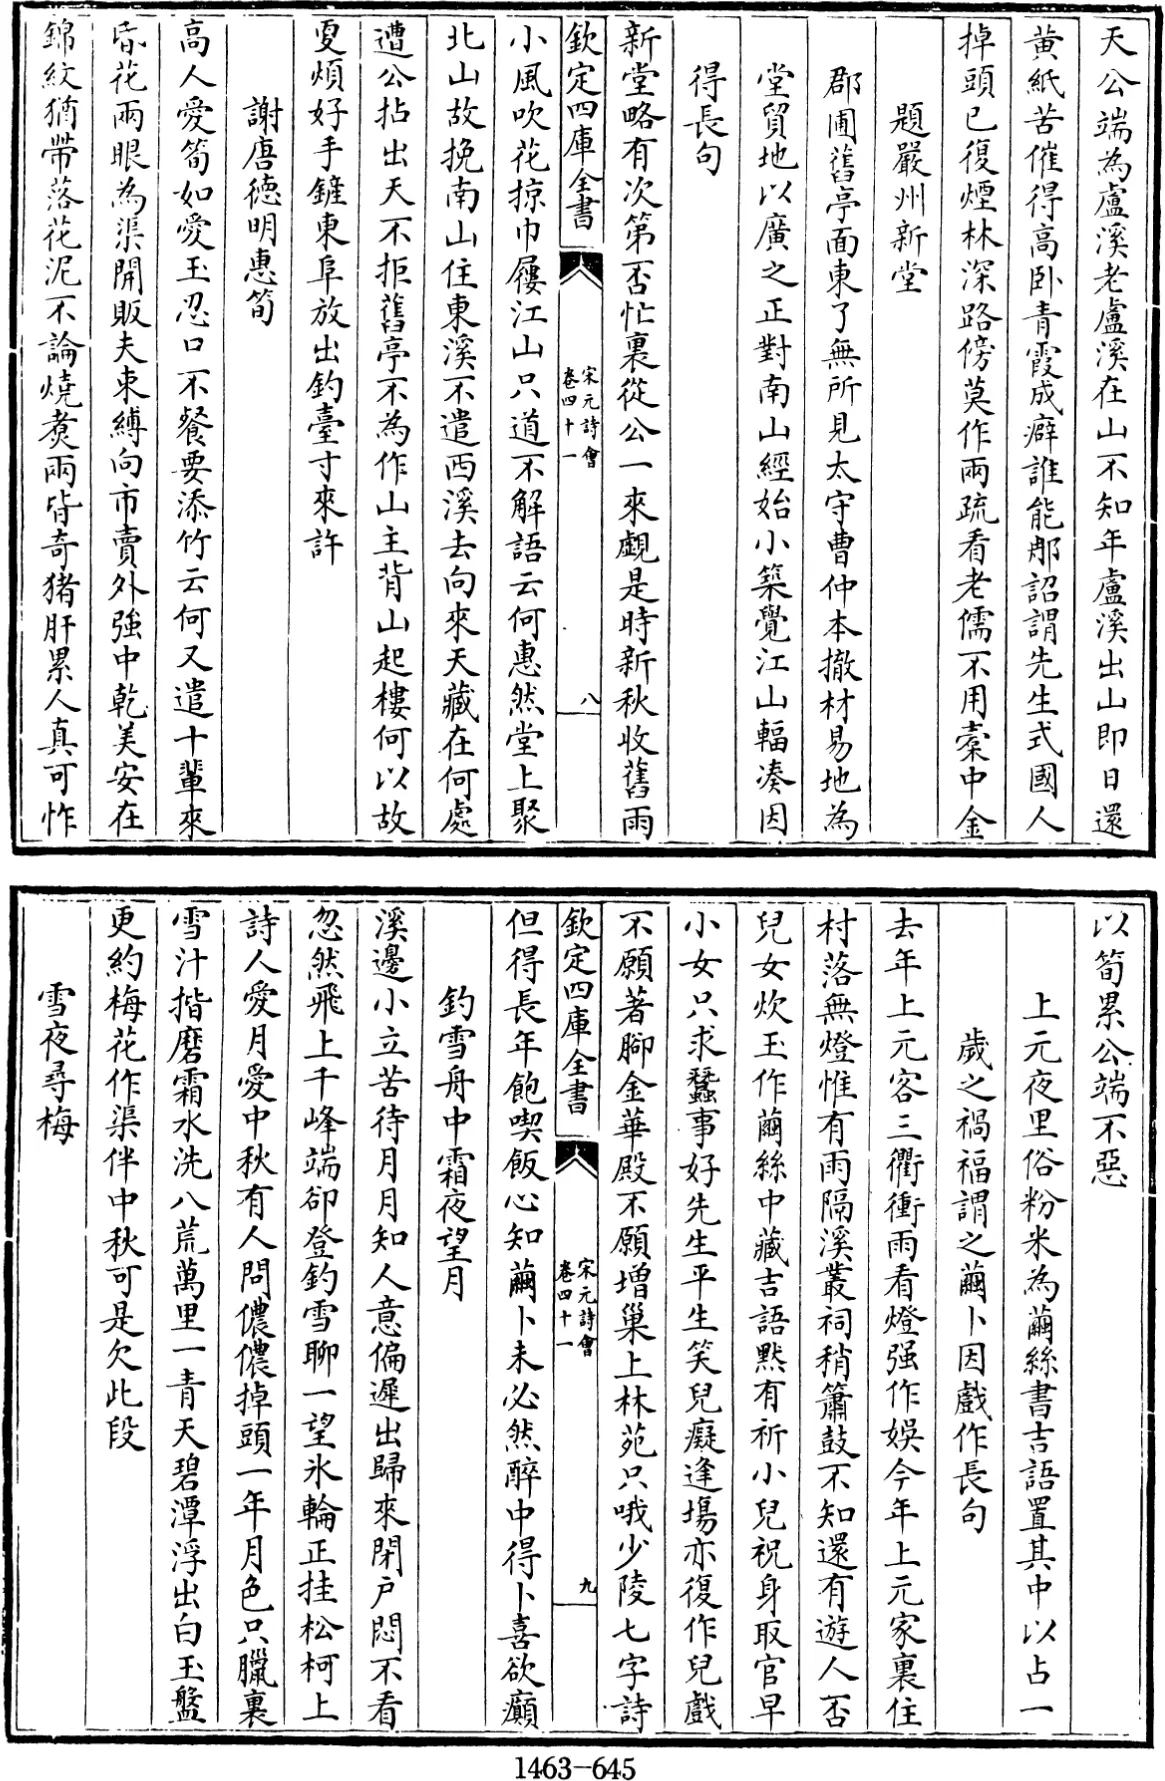 天公端為盧溪老盧溪在山不知年盧溪出山即日還
黄紙苦催得高卧青霞成癖誰能那詔謂先生式國人
掉頭已復煙林深路傍莫作兩疏看老儒不用橐中金
題嚴州新堂
郡圃舊亭面東了無所見太守曹仲本撤材易地為
堂貿地以廣之正對南山經始小築覺江山輻凑因
得長句
新堂略有次第否忙裏從公一來覷是時新秋收舊雨
欽定四庫全書
宋元詩會
卷四十一
八
小風吹花掠巾屨江山只道不解語云何惠然堂上聚
北山故挽南山住東溪不遣西溪去向來天藏在何處
遭公拈出天不拒舊亭不為作山主背山起樓何以故
更煩好手鏟東阜放出釣臺寸來許
謝唐德明惠筍
高人愛筍如愛玉忍口不餐要添竹云何又遣十輩來
昏花兩眼為渠開販夫束縛向市賣外強中乾美安在
錦紋猶帶落花泥不論燒煑兩皆奇猪肝累人真可怍
以筍累公端不惡
上元夜里俗粉米為繭絲書吉語置其中以占一
歲之禍福謂之繭卜因戲作長句
去年上元客三衢衝雨看燈强作娛今年上元家裏住
村落無燈惟有雨隔溪叢祠稍簫鼓不知還有遊人否
兒女炊玉作繭絲中藏吉語默有祈小兒祝身取官早
小女只求蠶事好先生平生笑兒癡逢塲亦復作兒戲
不願著腳金華殿不願增巢上林苑只哦少陵七字詩
欽定四庫全書
宋元詩會
卷四十一
九
但得長年飽喫飯心知繭卜未必然醉中得卜喜欲癲
釣雪舟中霜夜望月
溪邊小立苦待月月知人意偏遲出歸來閉户悶不看
忽然飛上千峰端卻登釣雪聊一望氷輪正挂松柯上
詩人愛月愛中秋有人問儂儂掉頭一年月色只臘裏
雪汁揩磨霜水洗八荒萬里一青天碧潭浮出白玉盤
更約梅花作渠伴中秋可是欠此段
雪夜尋梅
1463-645